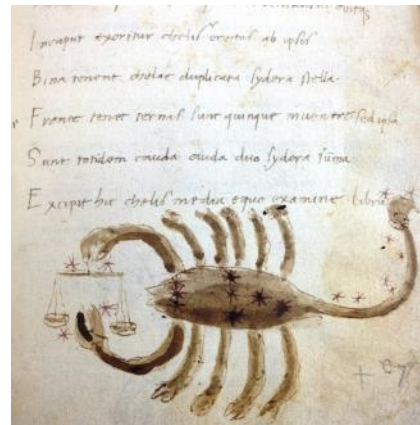 Incaput exoritur chelis ab ipsis
Bina tenent chelae duplicata sydera stella
Fronte tenet ternas sunt quinque in ventre sed ipsa
Sunt totidem cauda duo sydera
Excipit hic chelis media equo examine libra